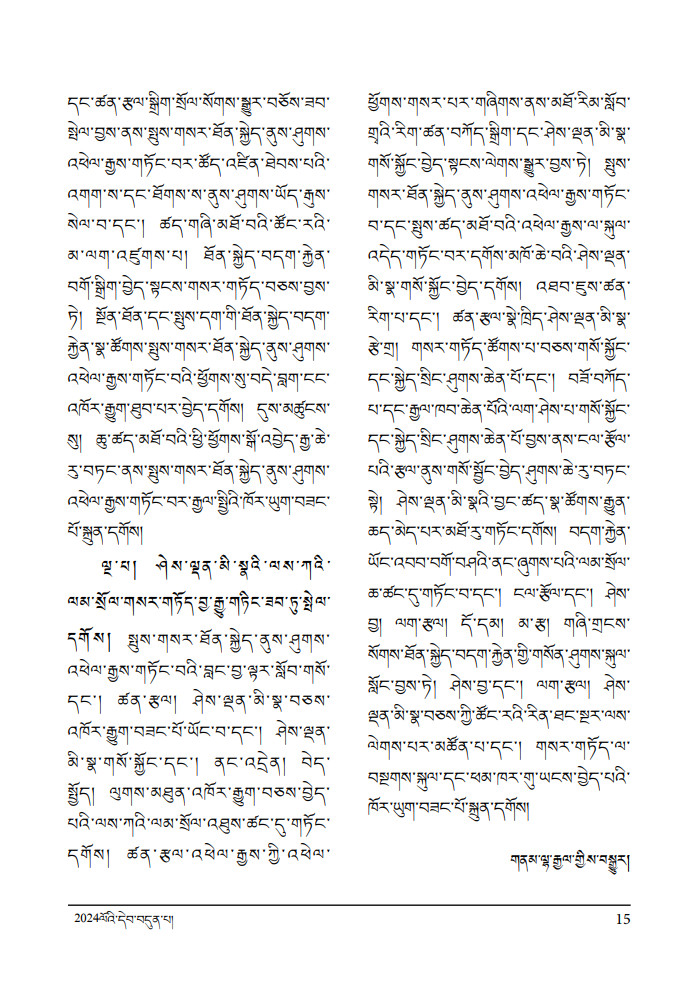 དང་ཚན་རྩལ་སྒྲིག་སྲོལ་སོགས་སྒྱུར་བཅོས་ཟབ་
སྤེལ་བྱས་ནས་སྤུས་གསར་ཐོན་སྐྱེད་ནུས་ཤུགས་
འཕེལ་རྒྱས་གཏོང་བར་ཚོད་འཛིན་ཐེབས་པའི་
འགག་ས་དང་ཐོགས་ས་ནུས་ཤུགས་ཡོད་རྒུས་
སེལ་བ་དང་། ཚད་གཞི་མཐོ་བའི་ཚོང་རའི་
མ་ལག་འཛུགས་པ། ཐོན་སྐྱེད་བདག་རྐྱེན་
བགོ་སྒྲིག་བྱེད་སྟངས་གསར་གཏོད་བཅས་བྱས་
ཏེ། སྔོན་ཐོན་དང་སྤུས་དག་གི་ཐོན་སྐྱེད་བདག་
རྐྱེན་སྣ་ཚོགས་སྤུས་གསར་ཐོན་སྐྱེད་ནུས་ཤུགས་
འཕེལ་རྒྱས་གཏོང་བའི་ཕྱོགས་སུ་བདེ་བླག་ངང་
འཁོར་རྒྱུག་ཐུབ་པར་བྱེད་དགོས། དུས་མཚུངས་
སུ། ཆུ་ཚད་མཐོ་བའི་ཕྱི་ཕྱོགས་སྒོ་འབྱེད་རྒྱ་ཆེ་
རུ་བཏང་ནས་སྤུས་གསར་ཐོན་སྐྱེད་ནུས་ཤུགས་
འཕེལ་རྒྱས་གཏོང་བར་རྒྱལ་སྤྱིའི་ཁོར་ཡུག་བཟང་
པོ་སྐྲུན་དགོས།
ལྔ་པ། ཤེས་ལྡན་མི་སྣའི་ལས་ཀའི་
ལམ་སྲོལ་གསར་གཏོད་བྱ་རྒྱུ་གཏིང་ཟབ་ཏུ་སྤེལ་
དགོས། སྤུས་གསར་ཐོན་སྐྱེད་ནུས་ཤུགས་
འཕེལ་རྒྱས་གཏོང་བའི་བླང་བྱ་ལྟར་སློབ་གསོ་
དང་། ཚན་རྩལ། ཤེས་ལྡན་མི་སྣ་བཅས་
འཁོར་རྒྱུག་བཟང་པོ་ཡོང་བ་དང་། ཤེས་ལྡན་
མི་སྣ་གསོ་སྐྱོང་དང་། ནང་འདྲེན། བེད་
སྤྱོད། ལུགས་མཐུན་འཁོར་རྒྱུག་བཅས་བྱེད་
པའི་ལས་ཀའི་ལམ་སྲོལ་འཐུས་ཚང་དུ་གཏོང་
དགོས། ཚན་རྩལ་འཕེལ་རྒྱས་ཀྱི་འཕེལ་
ཕྱོགས་གསར་པར་གཞིགས་ནས་མཐོ་རིམ་སློབ་
གྲྭའི་རིག་ཚན་བཀོད་སྒྲིག་དང་ཤེས་ལྡན་མི་སྣ་
གསོ་སྐྱོང་བྱེད་སྟངས་ལེགས་སྒྱུར་བྱས་ཏེ། སྤུས་
གསར་ཐོན་སྐྱེད་ནུས་ཤུགས་འཕེལ་རྒྱས་གཏོང་
བ་དང་སྤུས་ཚད་མཐོ་བའི་འཕེལ་རྒྱས་ལ་སྐུལ་
འདེད་གཏོང་བར་དགོས་མཁོ་ཆེ་བའི་ཤེས་ལྡན་
མི་སྣ་གསོ་སྐྱོང་བྱེད་དགོས། འཐབ་ཇུས་ཚན་
རིག་པ་དང་། ཚན་རྩལ་སྣེ་ཁྲིད་ཤེས་ལྡན་མི་སྣ་
རྩེ་གྲ། གསར་གཏོད་ཚོགས་པ་བཅས་གསོ་སྐྱོང་
དང་སྐྱེད་སྲིང་ཤུགས་ཆེན་པོ་དང་། བཟོ་བཀོད་
པ་དང་རྒྱལ་ཁབ་ཆེན་པོའི་ལག་ཤེས་པ་གསོ་སྐྱོང་
དང་སྐྱེད་སྲིང་ཤུགས་ཆེན་པོ་བྱས་ནས་ངལ་རྩོལ་
པའི་རྩལ་ནུས་གསོ་སྦྱོང་བྱེད་ཤུགས་ཆེ་རུ་བཏང་
སྟེ། ཤེས་ལྡན་མི་སྣའི་བྱང་ཚད་སྣ་ཚོགས་རྒྱུན་
ཆད་མེད་པར་མཐོ་རུ་གཏོང་དགོས། བདག་རྐྱེན་
ཡོང་འབབ་བགོ་བཤའི་ནང་ཞུགས་པའི་ལམ་སྲོལ་
ཆ་ཚང་དུ་གཏོང་བ་དང་། ངལ་རྩོལ་དང་། ཤེས་
བྱ། ལག་རྩལ། དོ་དམ། མ་རྩ། གཞི་གྲངས་
སོགས་ཐོན་སྐྱེད་བདག་རྐྱེན་གྱི་གསོན་ཤུགས་སྐུལ་
སློང་བྱས་ཏེ། ཤེས་བྱ་དང་། ལག་རྩལ། ཤེས་
ལྡན་མི་སྣ་བཅས་ཀྱི་ཚོང་རའི་རིན་ཐང་སྔར་ལས་
ལེགས་པར་མཚོན་པ་དང་། གསར་གཏོད་ལ་
བསྔགས་སྐུལ་དང་ཕམ་ཁར་གུ་ཡངས་བྱེད་པའི་
ཁོར་ཡུག་བཟང་པོ་སྐྲུན་དགོས།
གནམ་ལྷ་རྒྱལ་གྱིས་བསྒྱུར།
2024ལོའི་དེབ་བདུན་པ། 15